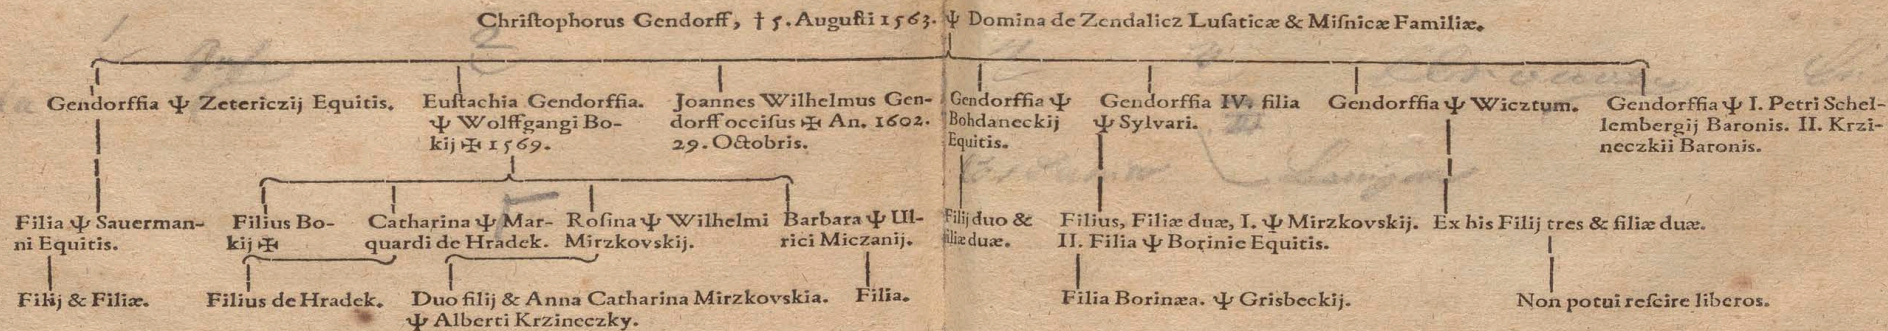 Chriſtophorus Gendorff, † 5. Auguſti 1563. Ψ Domina de Zendalicz Luſaticæ & Miſnicæ Familiæ.
Gendorffia Ψ Zetericzij Equitis.
Euſtachia Gendorffia.
Ψ Wolffgangi Bo-
kij ✠ 1569.
Joannes Wilhelmus Gen-
dorff occiſus ✠ An. 1602.
29. Octobris.
Gendorffia Ψ
Bohdaneckij
Equitis.
Gendorffia IV. filia
Ψ Sylvari.
Gendorffia Ψ Wicztum.
Gendorffia Ψ I. Petri Schel-
lembergij Baronis. II. Krzi-
neczkii Baronis.
Filia Ψ Sauerman-
ni Equitis.
Filius Bo-
kij ✠
Catharina Ψ Mar-
quardi de Hradek.
Roſina Ψ Wilhelmi
Mirzkovskij.
Barbara Ψ Ul-
rici Miczanij.
Filij duo &
filiæ duæ.
Filius, Filiæ duæ, I. Ψ Mirzkovskij.
II. Filia Ψ Borinie Equitis.
Ex his Filij tres & filiæ duæ.
Filij & Filiæ.
Filius de Hradek.
Duo filij & Anna Catharina Mirzkovskia.
Ψ Alberti Krzineczky.
Filia.
Filia Borinæa. Ψ Grisbeckij.
Non potui reſcire liberos.